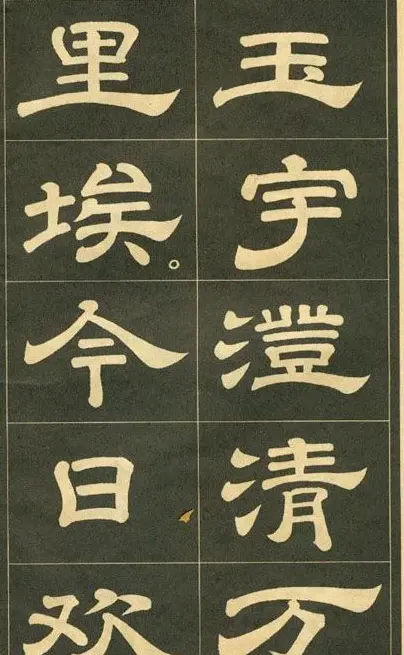 玉宇澄清万
里埃。今日欢